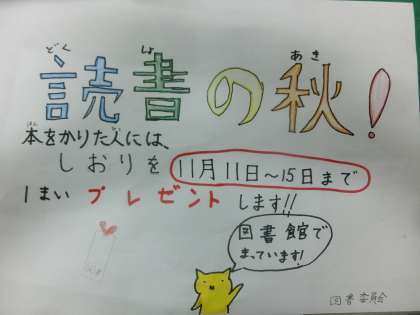 読書の秋!
本をかりた人には、
しおりを 11月11日～15日まで
1まい プレゼント します!!
図書館で
まっています!
図書委員会